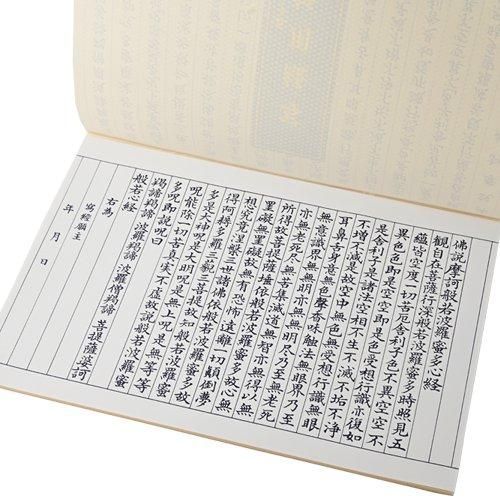 佛説摩訶般若波羅蜜多心経
観自在菩薩行深般若波羅蜜多時照見五
蘊皆空度一切苦厄舎利子色不異空空不
異色色即是空空即是色受想行識亦復如
是舎利子是諸法空相不生不滅不垢不浄
不増不減是故空中無色無受想行識無眼
耳鼻舌身意無色聲香味触法無眼界乃至
無意識界無無明亦無無明尽乃至無老死
亦無老死尽無苦集滅道無智亦無得以無
所得故菩提薩埵依般若波羅蜜多故心無
罣礙無罣礙故無有恐怖遠離一切顛倒夢
想究竟涅槃三世諸佛依般若波羅蜜多故
得阿耨多羅三藐三菩提故知般若波羅蜜
多是大神呪是大明呪是無上呪是無等等
呪能除一切苦真実不虚故説般若波羅蜜
多呪即説呪曰
羯諦羯諦 波羅羯諦 波羅僧羯諦 菩提薩婆訶
般若心経
右為
寫経願主
年 月 日